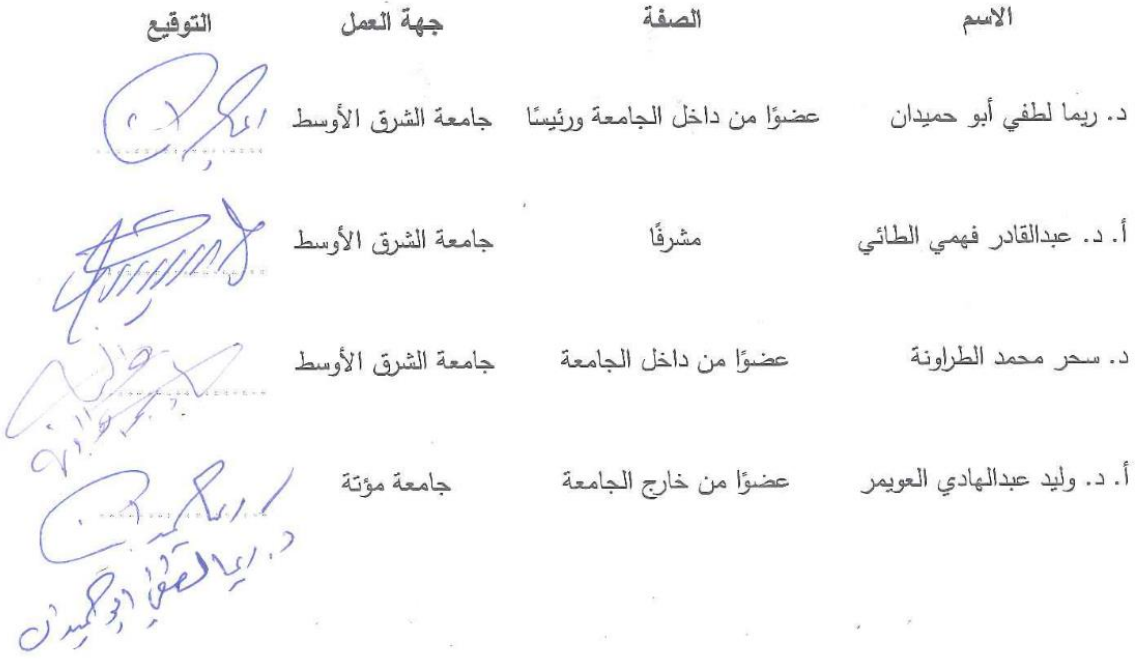 الاسم الصفة جهة العمل التوقيع
د. ريما لطفي أبو حميدان عضوًا من داخل الجامعة ورئيسًا جامعة الشرق الأوسط
أ. د. عبدالقادر فهمي الطائي مشرفًا جامعة الشرق الأوسط
د. سحر محمد الطراونة عضوًا من داخل الجامعة جامعة الشرق الأوسط
أ. د. وليد عبدالهادي العويمر عضوًا من خارج الجامعة جامعة مؤتة
د. ريما لطفي أبو حميدان